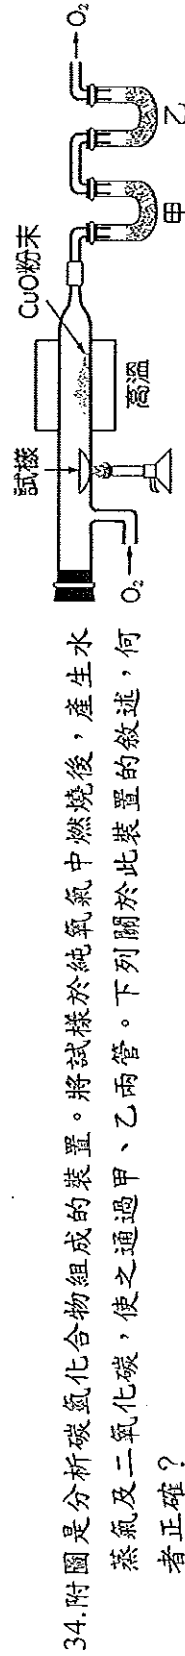 34.附圖是分析碳氫化合物組成的裝置。將試樣於純氧氣中燃燒後，產生水
蒸氣及二氧化碳，使之通過甲、乙兩管。下列關於此裝置的敘述，何
者正確？
試樣
CuO粉末
O₂
高溫
甲
乙
O₂